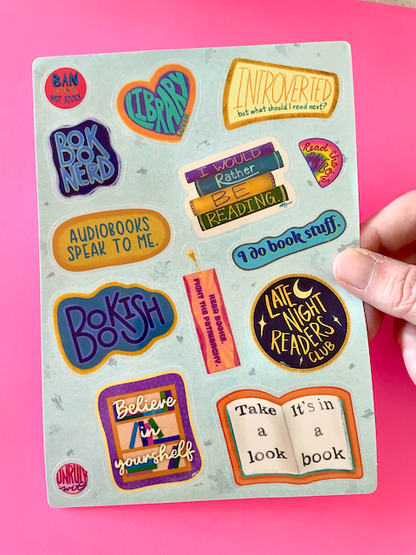 BAN
NOT BOOKS
LIBRARY
INTROVERTED
...but what should I read next?
BOOK
NERD
I WOULD
Rather
BE
READING.
Read the
AUDIOBOOKS
SPEAK TO ME.
I do book stuff.
BOOKISH
READ BOOKS.
FIGHT THE PATRIARCHY.
LATE
NIGHT
READERS
CLUB
Believe
in
yourshelf
Take
a
look
It's in
a
book
UNRULY